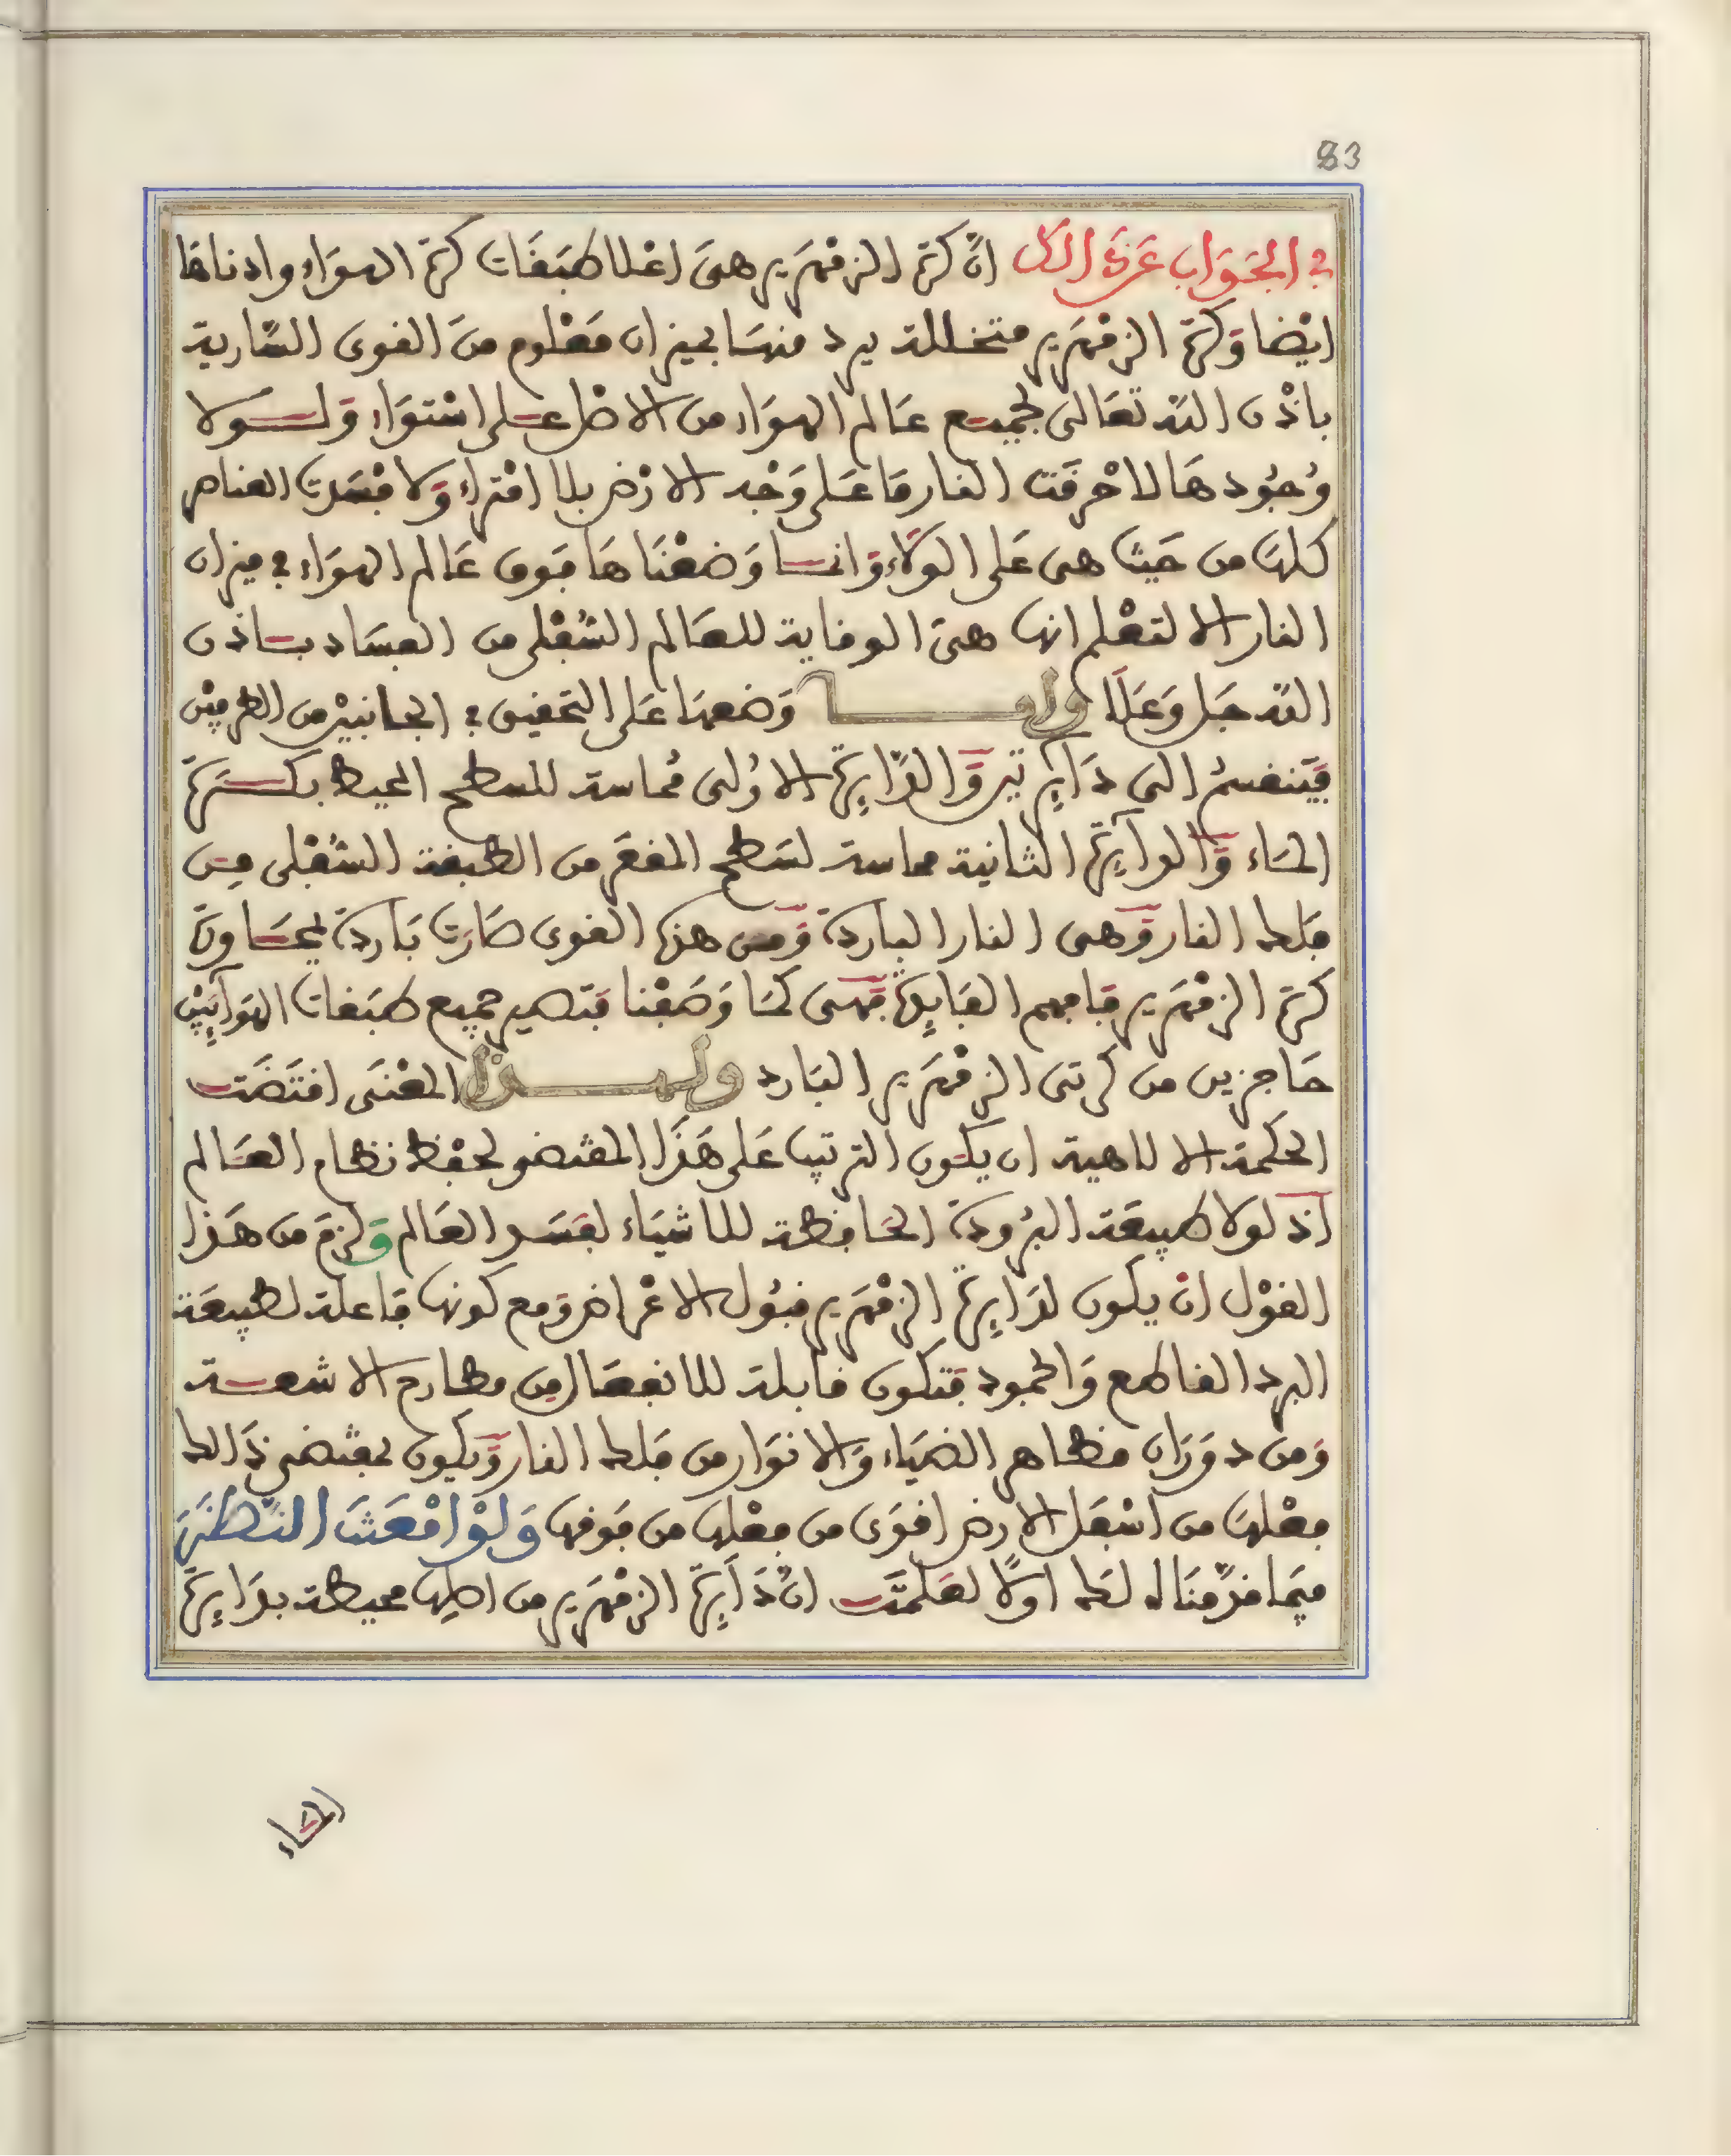 83
في الجَوَاب عَن ذَلك انّ كرة الزمْهَرير هيَ اعْلا طبَقَات كرة الهوَاء وادناهَا
ايْضا وَكرة الزمْهَرير متخللة يرد منهَا بميزان مَعْلوم منَ القوى السَّارية
باذْن اللَّه تعَالى لجميع عَالم الهوَاء من الاصْل على اسْتوَاء وَلَولا
وُجُودهَا لاحْرقَت النار مَا عَلى وَجْه الارْض بلا امْتراء وَلافسَدت العناصر
كلهَا من حَيث هي عَلى الوَلَاء وَانما وَضعْنَاهَا فوق عَالم الهوَاء في ميزان
النار الا لتعْلم انها هيَ الوقاية للعَالم السُّفْلى من الفسَاد باذن
اللَّه جَل وَعَلَا ولما وَضعهَا عَلى التحقيق في الجانبيْن من الطرفيْن
فيَنقسمُ الى دَآئرتين وَالدَّائرة الاوُلى مُماسة للسطح المحيط بكرة
المَاء وَالدآئرة الثانية مماسة لسَطح المقعَر من الطبقة السُّفْلى من
فلك النار وَهي النار الباردة وَمن هذه القوى صَارَت بَاردة لمجَاورة
كرة الزمْهَرير فَافهم الفَايدة فهى كمَا وَصَفْنا فتصير جميع طبَقات الهوَآئين
حَاجزين من كرتى الزمْهَرير البَارد ولهذا المعْنَى اقتَضَت
الحكمة الالاهية ان يكون الترتيب عَلى هَذَا المقتضو لحفْظ نظام العَالم
اذ لولا طبيعَة البرُودة الحَافظة للاشيَاء لفسَد العَالم وَلزمَ من هَذا
القوْل انْ يكون لدَايرة الزمْهَرير قبُول الاعْراض وَمع كونها فاعلة لطبيعَة
البرد القاطع وَالجمود فتكون قابلة للانفعَال من مطارح الاشعة
وَمن دوَرَان مظاهر الضيَاء وَالانوَار من فلك النار وَيكون بمقتضى ذَالك
فعْلهَا من اسْفَل الارض اقوَى من فعْلها من فوقها وَلوْ امْعَنتَ النَّظَر
فيمَا قدَّمْنَاه لك اولًا لعَلمْتَ انَّ دَآئرة الزمْهَرير من اصلها محيطة بدَائرة
المَاء